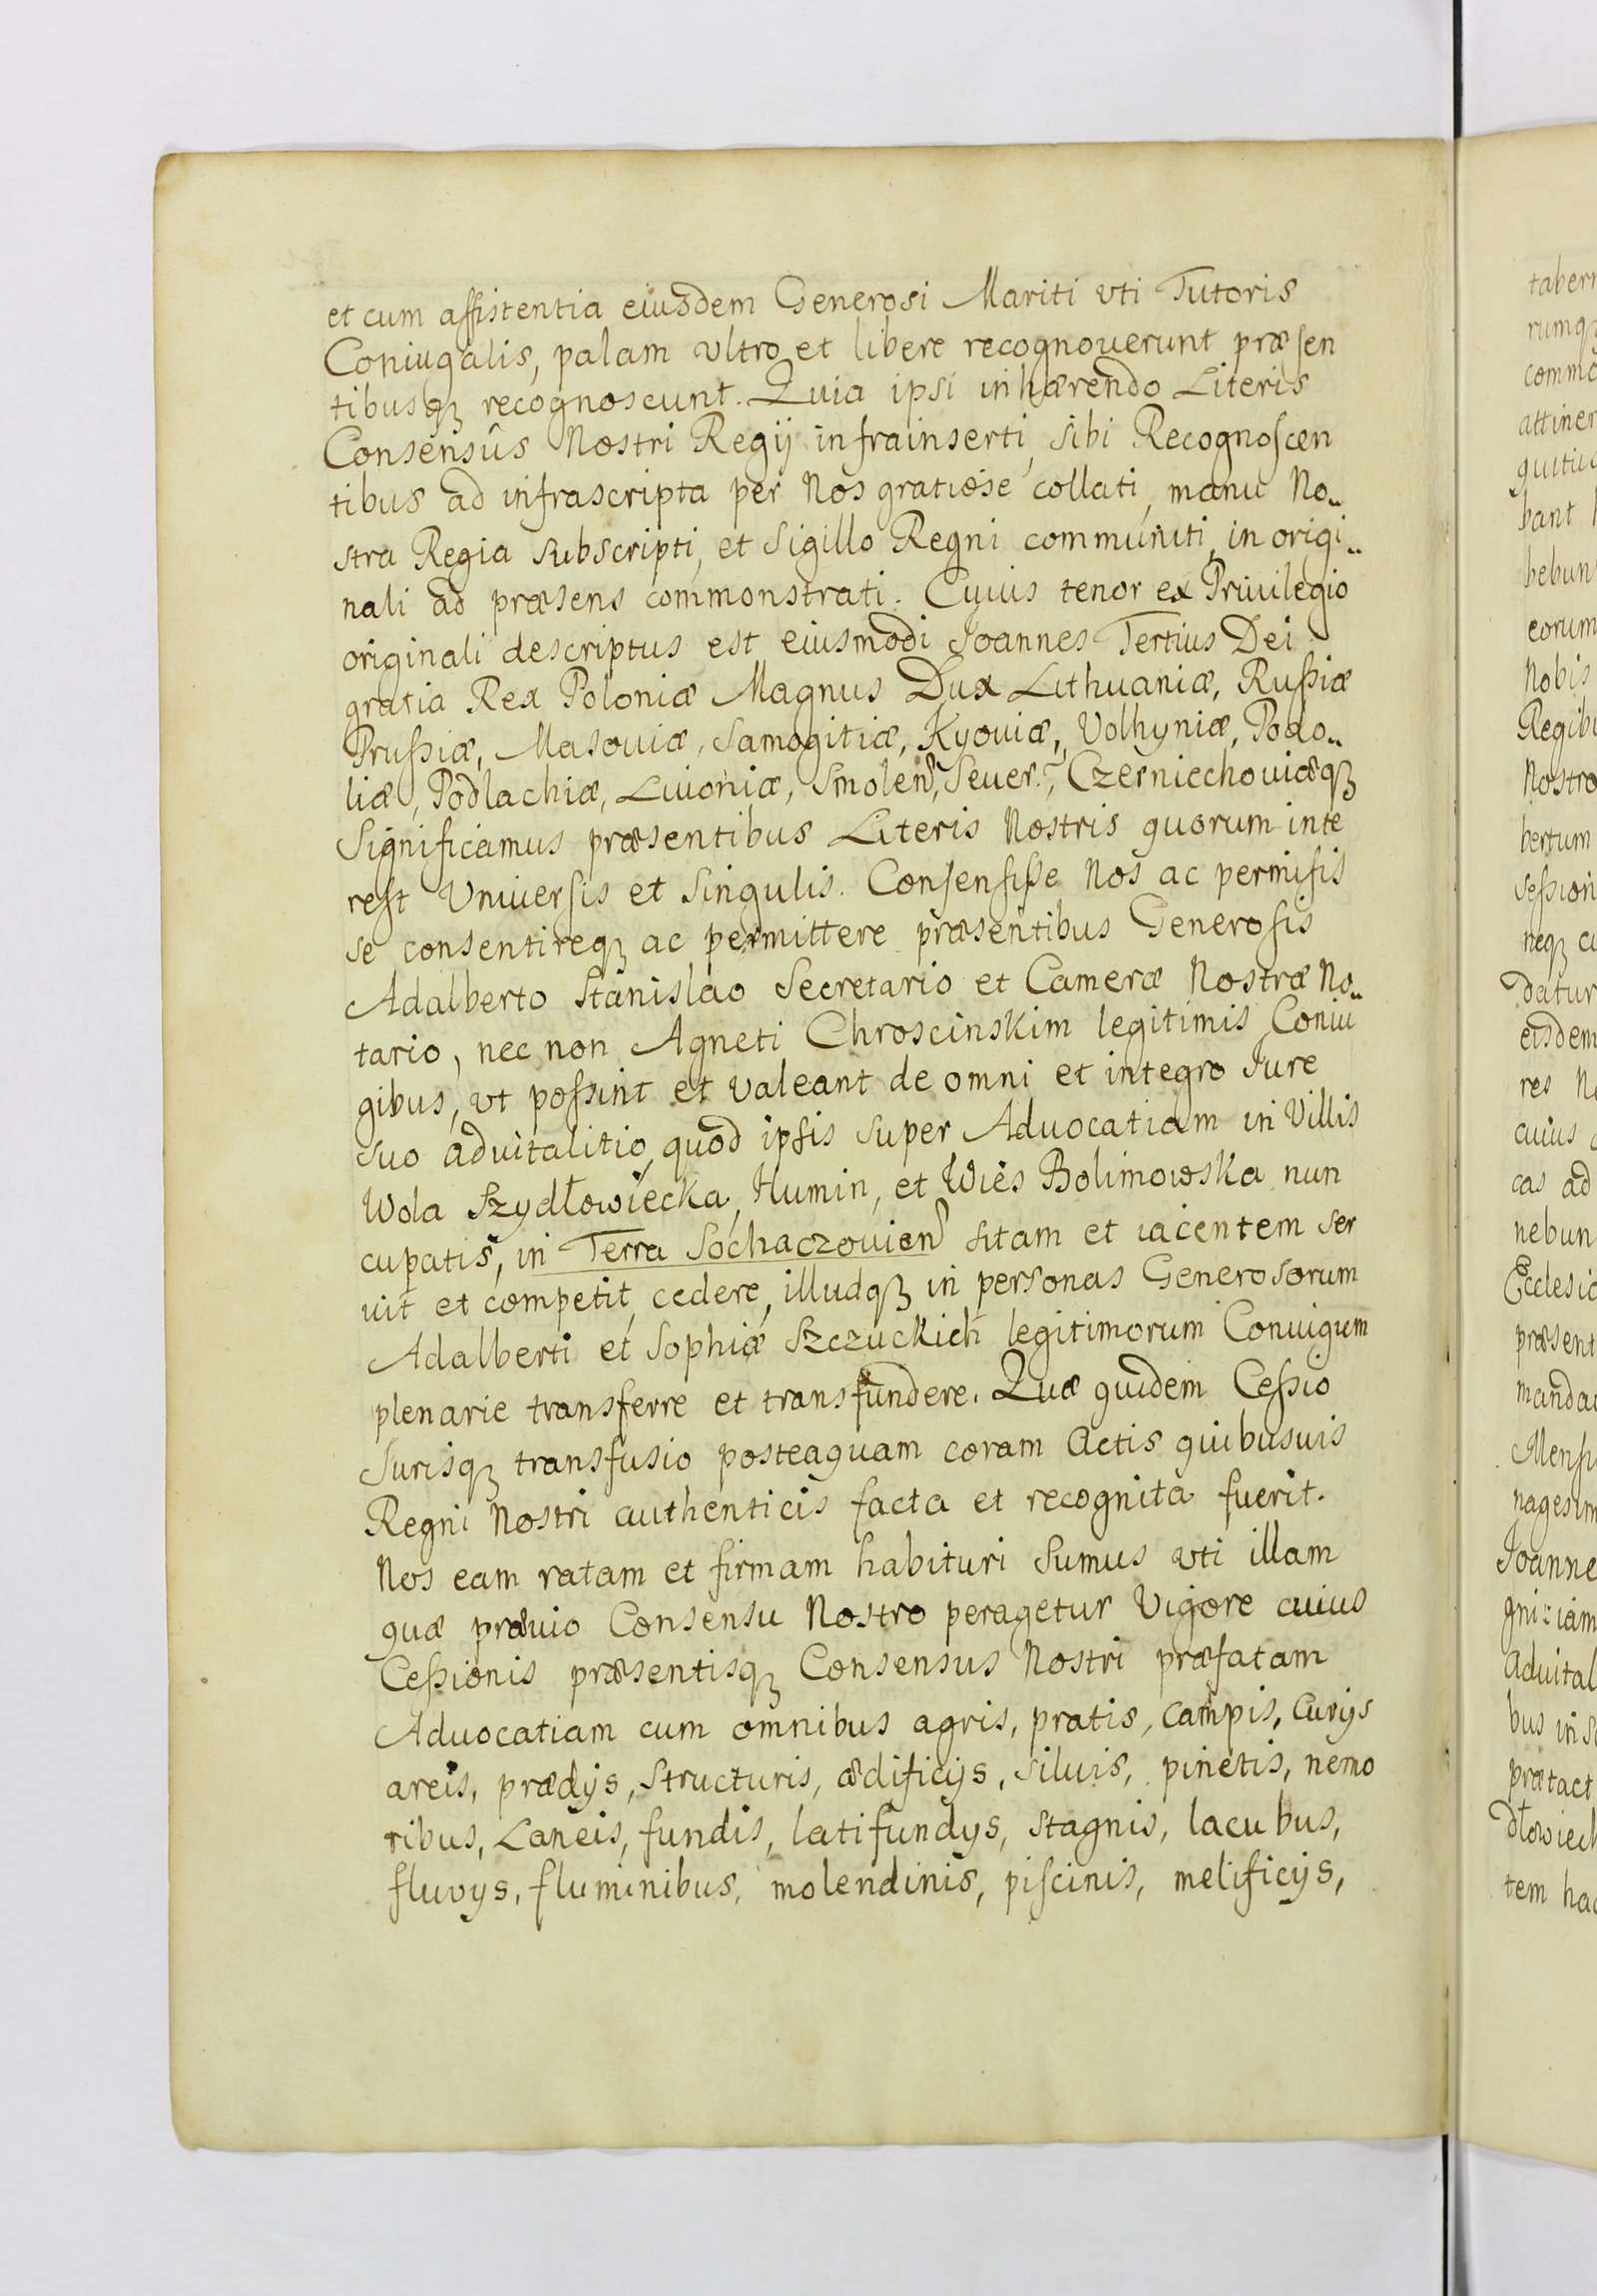 et cum assistentia eiusdem Generosi Mariti vti Tutoris
Coniugalis, palam vltro et libere recognouerunt præsen
tibusq; recognoscunt. Quia ipsi inhærendo Literis
Consensûs Nostri Regij infrainserti, sibi Recognoscen
tibus ad infrascripta per Nos gratiose collati, manu No..
stra Regia subscripti, et Sigillo Regni communiti, in origi..
nali ad præsens commonstrati. Cuius tenor ex Priuilegio
originali descriptus est eiusmodi Joannes Tertius Dei
gratia Rex Poloniæ Magnus Dux Lithuaniæ, Russiæ
Prussiæ, Masouiæ, Samogitiæ, Kyouiæ, Volhyniæ, Podo..
liæ, Podlachiæ, Liuoniæ, Smolen, Seuer., Czerniechouiæq;
Significamus præsentibus Literis Nostris quorum inte
rest Vniuersis et Singulis. Consensisse Nos ac permisis
se consentireq; ac permittere præsentibus Generosis
Adalberto Stanislao Secretario et Cameræ Nostræ No..
tario, nec non Agneti Chroscinskim legitimis Coniu
gibus, vt possint et valeant de omni et integro Jure
suo aduitalitio, quod ipsis super Aduocatiam in Villis
Wola Szydłowiecka, Humin, et Wies Bolimowska nun
cupatis, in Terra Sochaczouien sitam et iacentem ser
uit et competit, cedere, illudq; in personas Generosorum
Adalberti et Sophiæ Szczuckich legitimorum Coniugum
plenarie transferre et transfundere. Quæ quidem Cessio
Jurisq; transfusio posteaquam coram Actis quibusuis
Regni Nostri authenticis facta et recognita fuerit.
Nos eam ratam et firmam habituri sumus vti illam
quæ præuio Consensu Nostro peragetur Vigore cuius
Cessionis præsentisq; Consensus Nostri præfatam
Aduocatiam cum omnibus agris, pratis, campis, curijs
areis, prædijs, structuris, ædificijs, siluis, pinetis, nemo
ribus, Laneis, fundis, latifundijs, stagnis, lacubus,
fluvijs, fluminibus, molendinis, piscinis, melificijs,
tabern
rumq;
commo
attinen
quitiu
bant
bebun
eorum
Nobis
Regibu
Nostro
bertum
session
neq; cu
datur
eisdem
res No
cuius
cas ad
nebun
Ecclesia
præsent
mandau
Mensi
nagesim
Joanne
gnitiam
Aduital
bus in S
prætact
dłowieck
tem hac